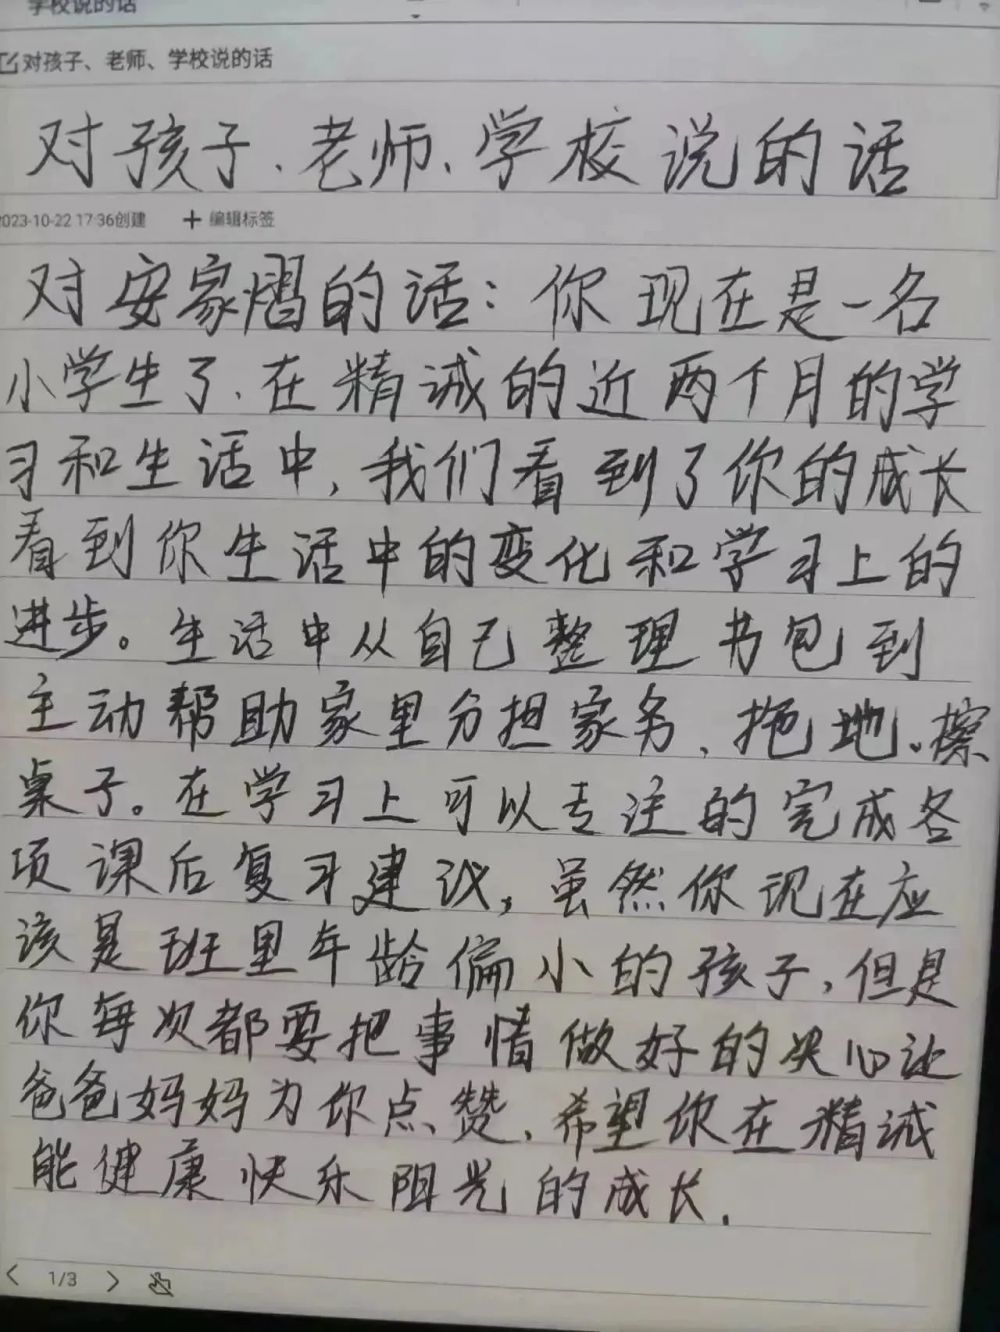 学校说的话
对孩子、老师、学校说的话
对孩子、老师、学校说的话
2023-10-22 17:36创建 + 编辑标签
对安家熠的话：你现在是一名
小学生了、在精诚的近两个月的学
习和生活中，我们看到了你的成长
看到你生活中的变化和学习上的
进步。生活中从自己整理书包到
主动帮助家里分担家务、拖地、擦
桌子。在学习上可以专注的完成各
项课后复习建议，虽然你现在应
该是班里年龄偏小的孩子，但是
你每次都要把事情做好的决心让
爸爸妈妈为你点赞，希望你在精诚
能健康快乐阳光的成长.
< 1/3 >